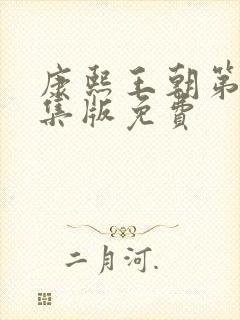 康熙王朝第
集版免费
二月河.